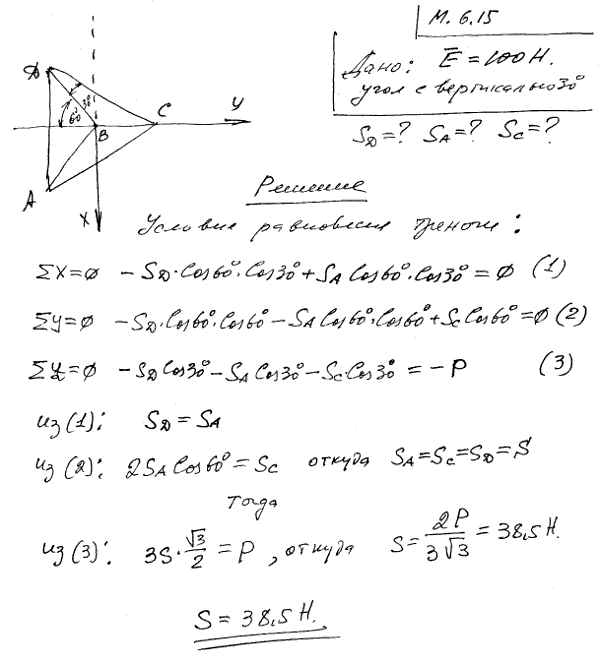 М. 6.15
Дано: E = 100 Н.
угол с вертикалью 30°
S_D = ? S_A = ? S_C = ?
D 30° 60° C y
B
A
X
Решение
Условие равновесия треноги:
ΣX=∅ - S_D·Cos60°·Cos30° + S_A Cos60°·Cos30° = ∅ (1)
Σy=∅ - S_D·Cos60°·Cos60° - S_A Cos60°·Cos60° + S_C Cos60° = ∅ (2)
Σz=∅ - S_D Cos30° - S_A Cos30° - S_C Cos30° = - P (3)
из (1): S_D = S_A
из (2): 2S_A Cos60° = S_C откуда S_A = S_C = S_D = S
Тогда
из (3): 3S·√3/2 = P, откуда S = 2P/3√3 = 38,5 Н.
S = 38,5 Н.